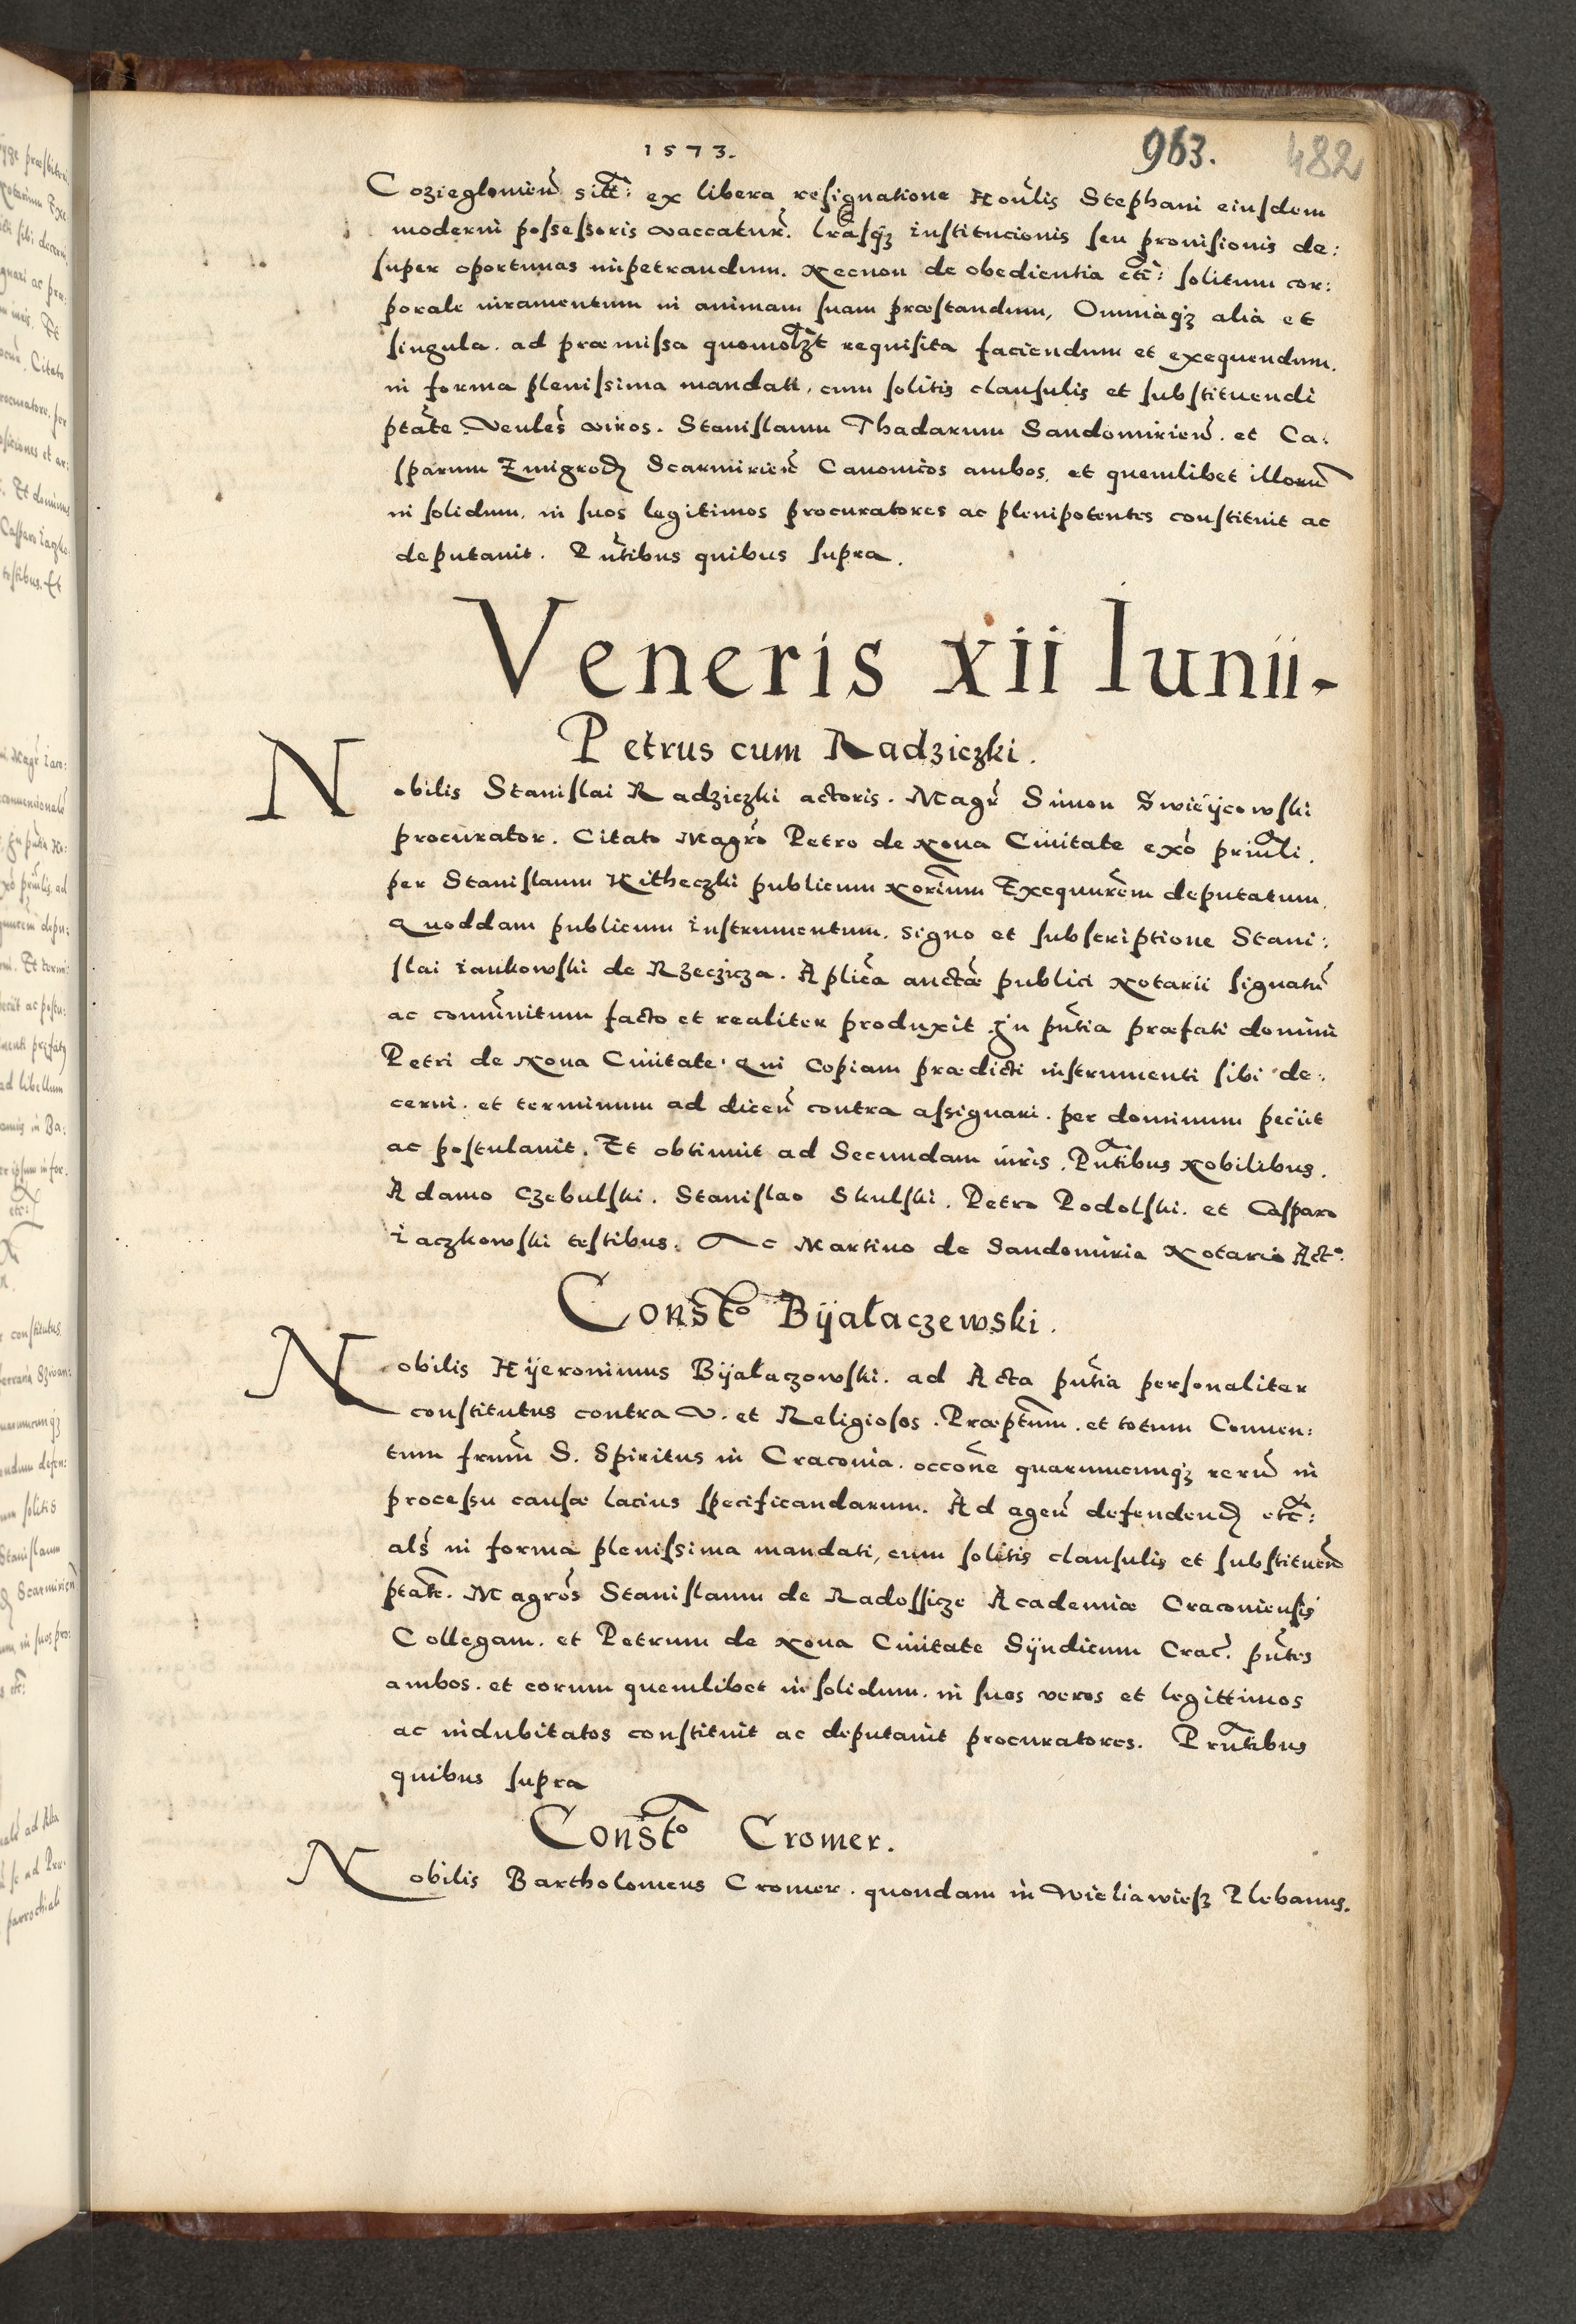 1573.
963.
482
Cozieglouień sitt: ex libera resignatione Honlis Stephani eiusdem
moderni possessoris vaccatur. lrasq3 institucionis seu prouisionis de:
super oportunas impetrandum. Necnon de obedientia etc: solitum cor:
porale iuramentum in animam suam præstandum, Omniaq3 alia et
singula. ad præmissa quomolzt requisita faciendum et exequendum.
in forma plenissima mandati, cum solitis clausulis et substituendi
ptate. Venles viros. Stanislaum Thadarum Sandomirien. et Ca:
sparum Zmigrod Scarmirien Canonicos ambos. et quemlibet illorum
in solidum. in suos legitimos procuratores ac plenipotentes constituit ac
deputauit. Pntibus quibus supra.
Veneris xii Iunii-
Petrus cum Radziczki.
Nobilis Stanislai Radziczki actoris. Magr Simon Swieÿcowski
procurator. Citato Magro Petro de Noua Ciuitate exo priuli.
per Stanislaum Kitheczki publicum Norium Exequurem deputatum.
Quoddam publicum instrumentum. signo et subscriptione Stani:
slai iankowski de Rzeczicza. Aplica aucta publici Notarii signatu
ac comunitum facto et realiter produxit. In pntia præfati domini
Petri de Noua Ciuitate. Qui Copiam prædicti instrumenti sibi de:
cerni. et terminum ad dicen contra assignari. per dominum peciit
ac postulauit. Et obtinuit ad Secundam iuris. Pntibus Nobilibus.
Adamo Czebulski. Stanislao Skulski. Petro Podolski. et Casparo
iaczkowski testibus. Ac Martino de Sandomiria Notario Acto.
Consto Bijałaczewski.
Nobilis Hÿeronimus Bijałaczowski. ad Acta pntia personaliter
constitutus contra V. et Religiosos. Præptum. et totum Conuen:
tum frum S. Spiritus in Craconia. occone quarumcunq3 reru in
processu causæ lacius specificandarum. Ad agen defendend etc:
als in forma plenissima mandati, cum solitis clausulis et substituen
ptate. Magros Stanislaum de Radossicze Academiæ Craconiensis
Collegam. et Petrum de Noua Ciuitate Sÿndicum Crac. pntes
ambos. et eorum quemlibet in solidum. in suos veros et legittimos
ac indubitatos constituit ac deputauit procuratores. Prntibus
quibus supra
Consto Cromer.
Nobilis Bartholomeus Cromer. quondam in Wieliawiess Plebanus.